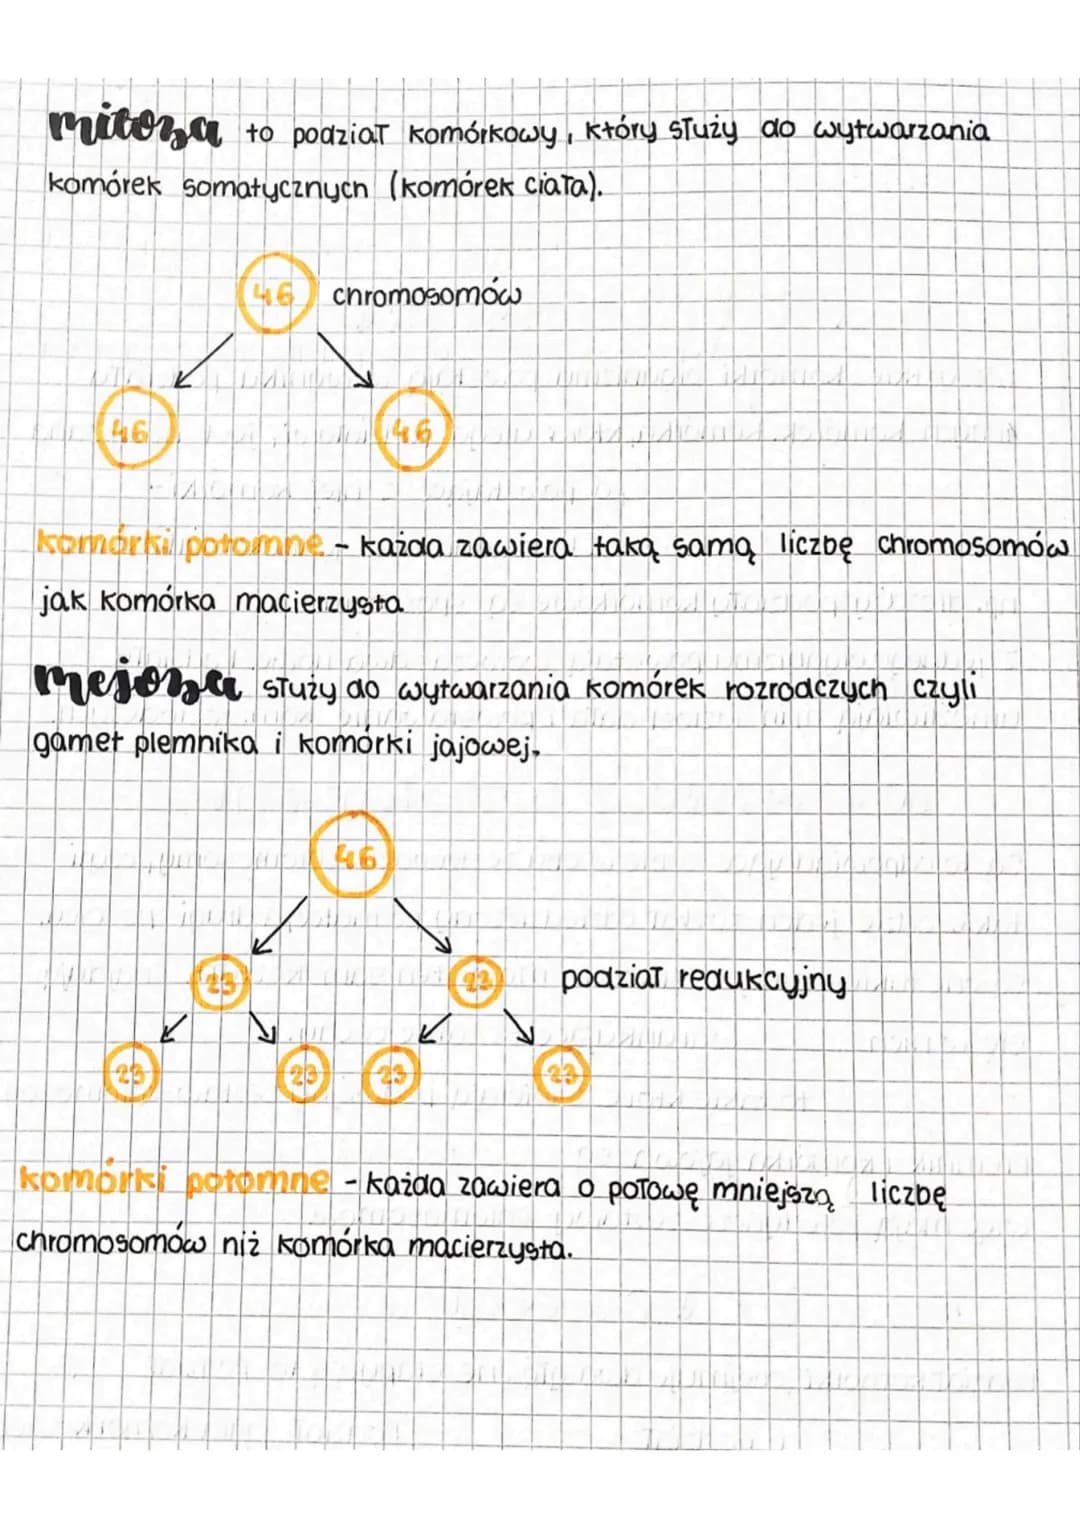 mitoza to podział komórkowy, który służy do wytwarzania
komórek somatycznych (komórek ciała).
46 chromosomów
46 46
komórki potomne - każda zawiera taką samą liczbę chromosomów
jak komórka macierzysta
mejoza służy do wytwarzania komórek rozrodczych czyli
gamet plemnika i komórki jajowej.
46
23 23 podział redukcyjny
23 23 23 23
komórki potomne - każda zawiera o połowę mniejszą liczbę
chromosomów niż komórka macierzysta.